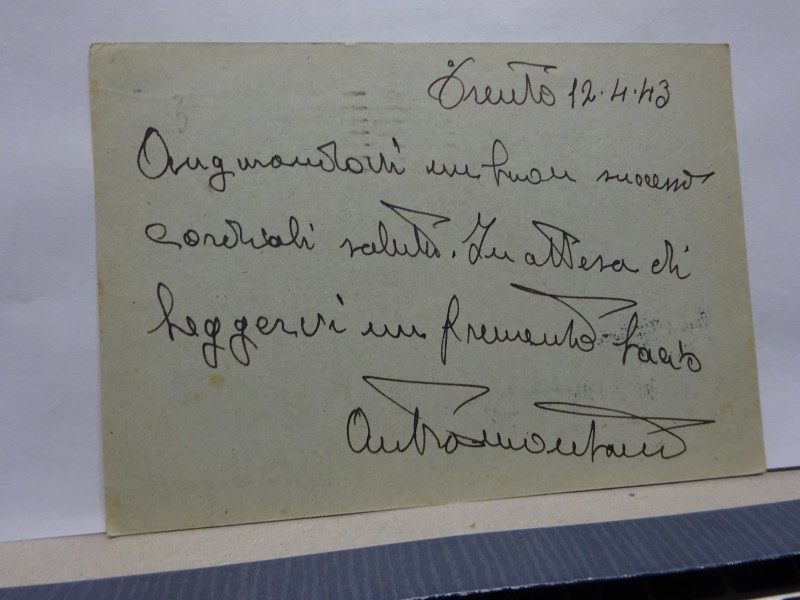 Trento 12.4.43
Augurandovi un buon successo
cordiali saluti. In attesa di
leggervi un fremente bacio